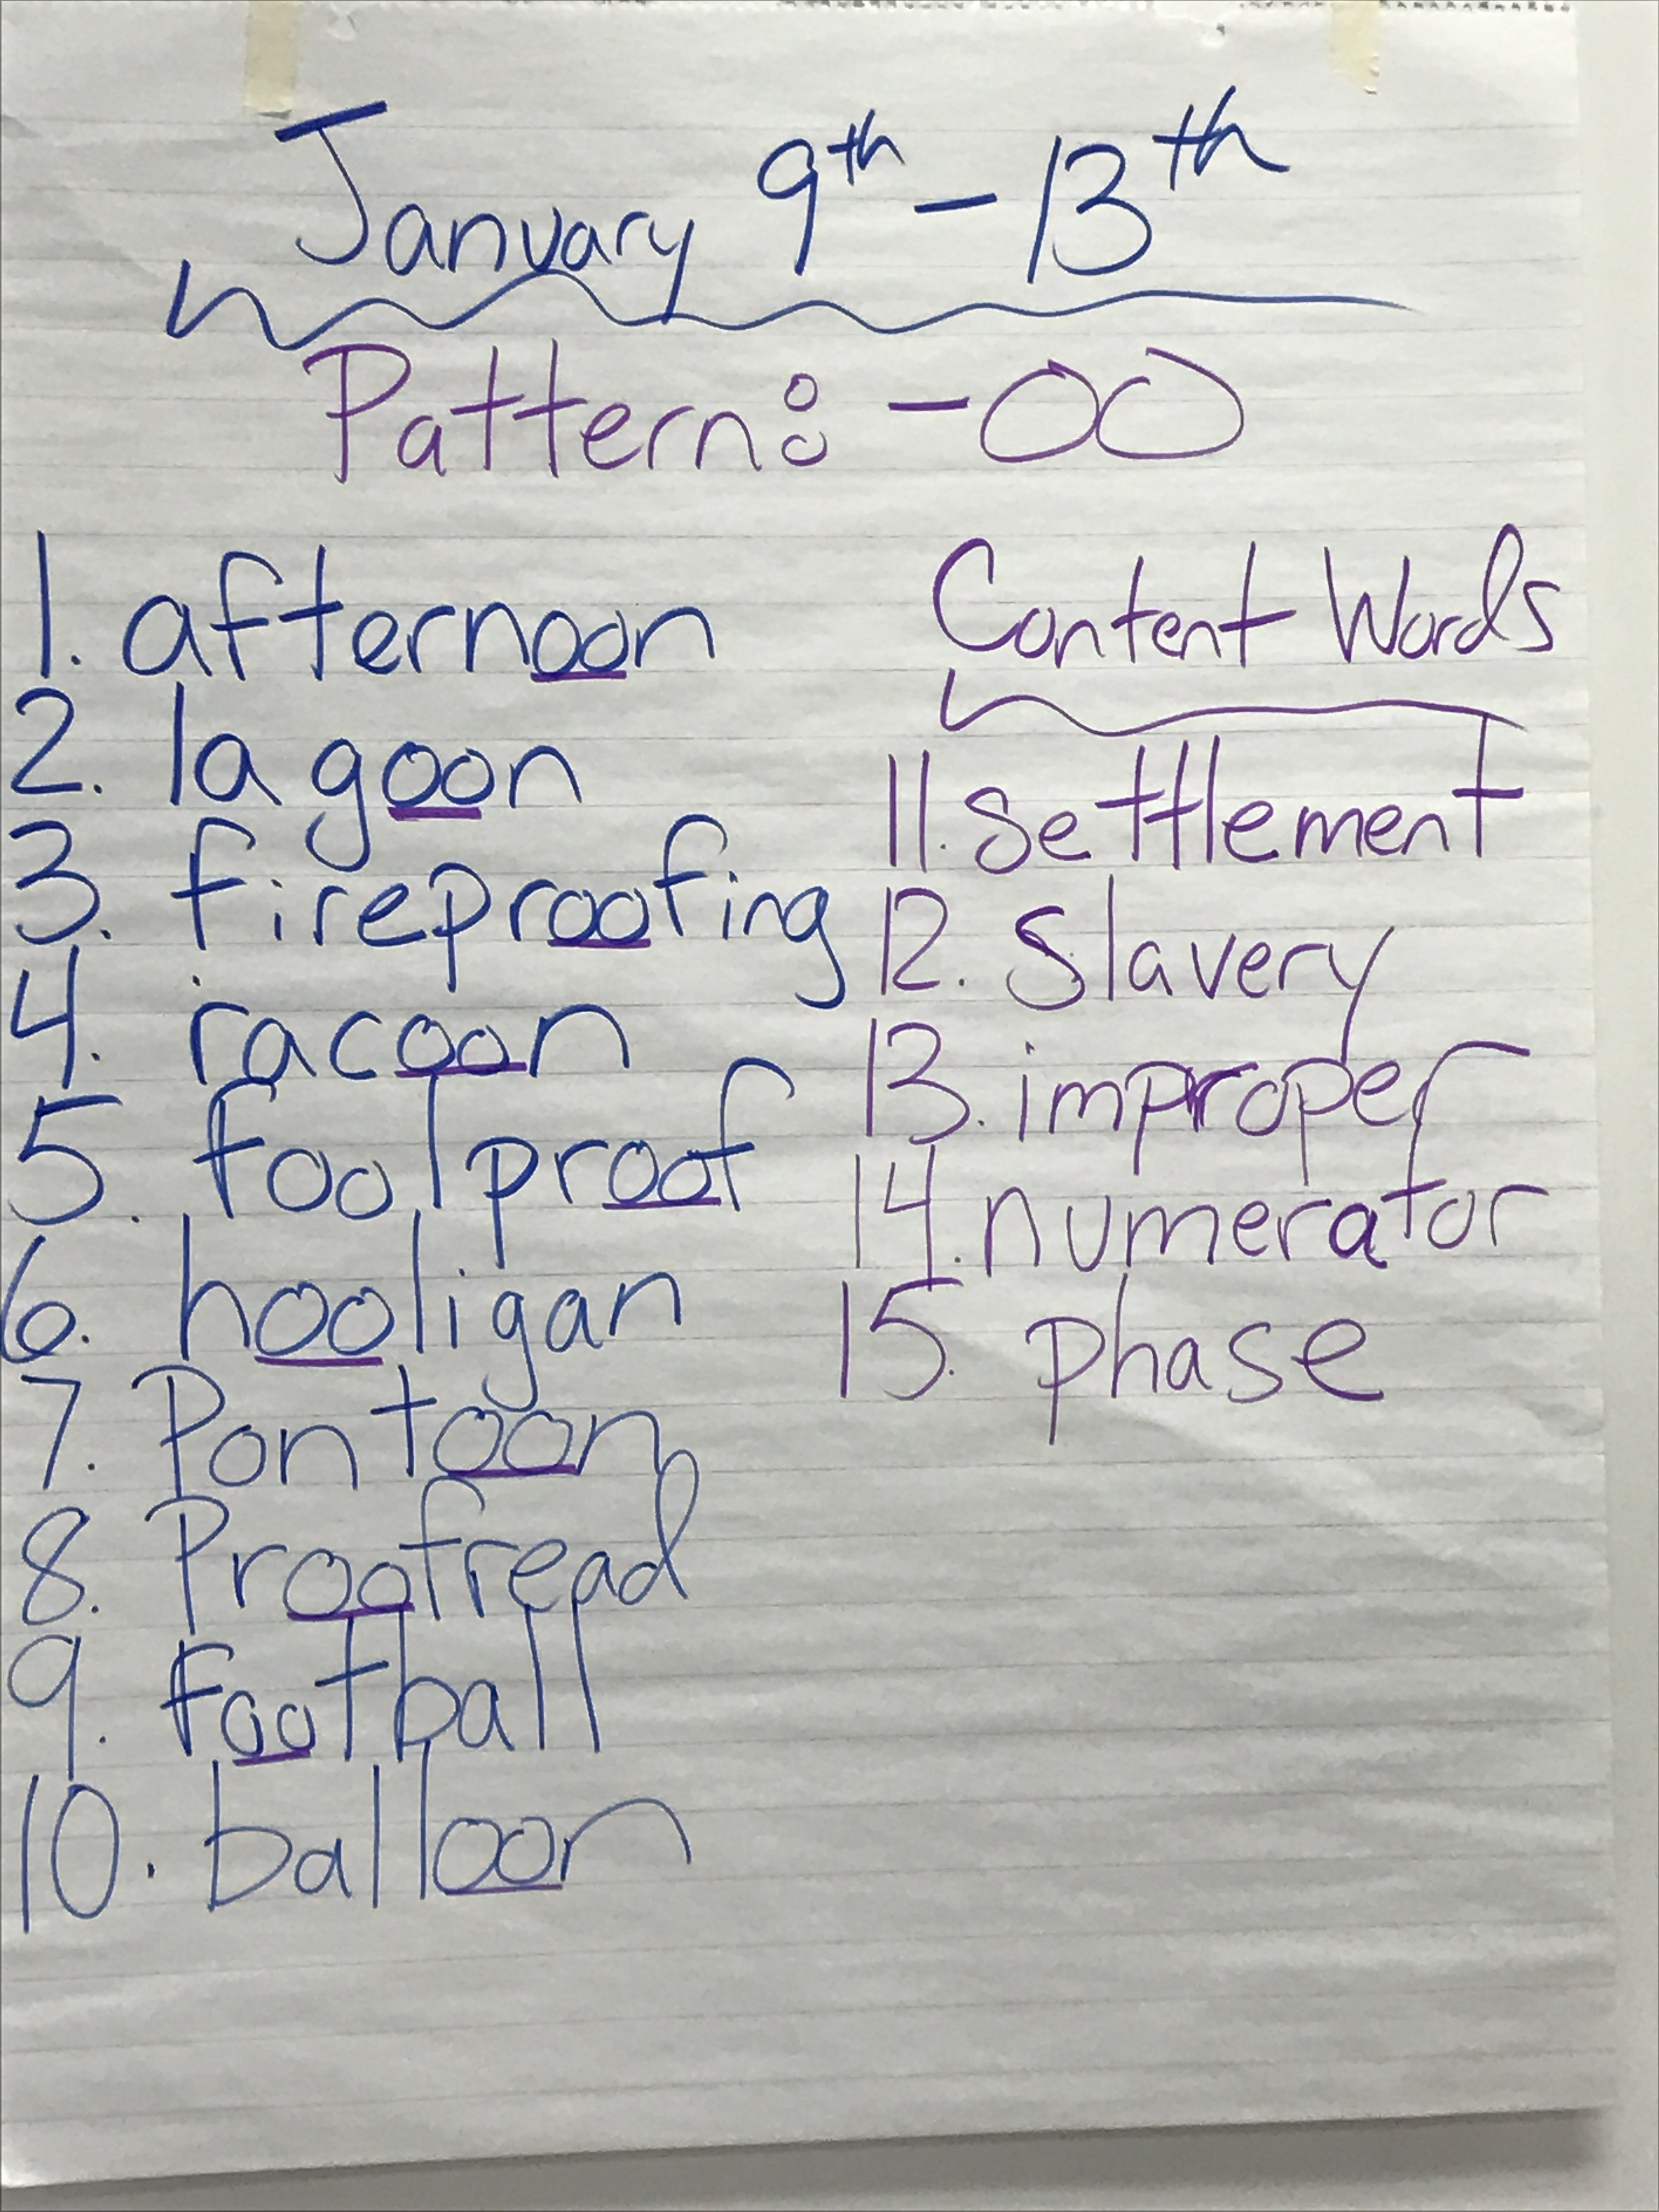 January 9th - 13th
Pattern: -oo
1. afternoon
2. lagoon
3. fireproofing
4. racoon
5. foolproof
6. hooligan
7. Pontoon
8. Proofread
9. Football
10. balloon
Content Words
11. Settlement
12. Slavery
13. improper
14. numerator
15. phase